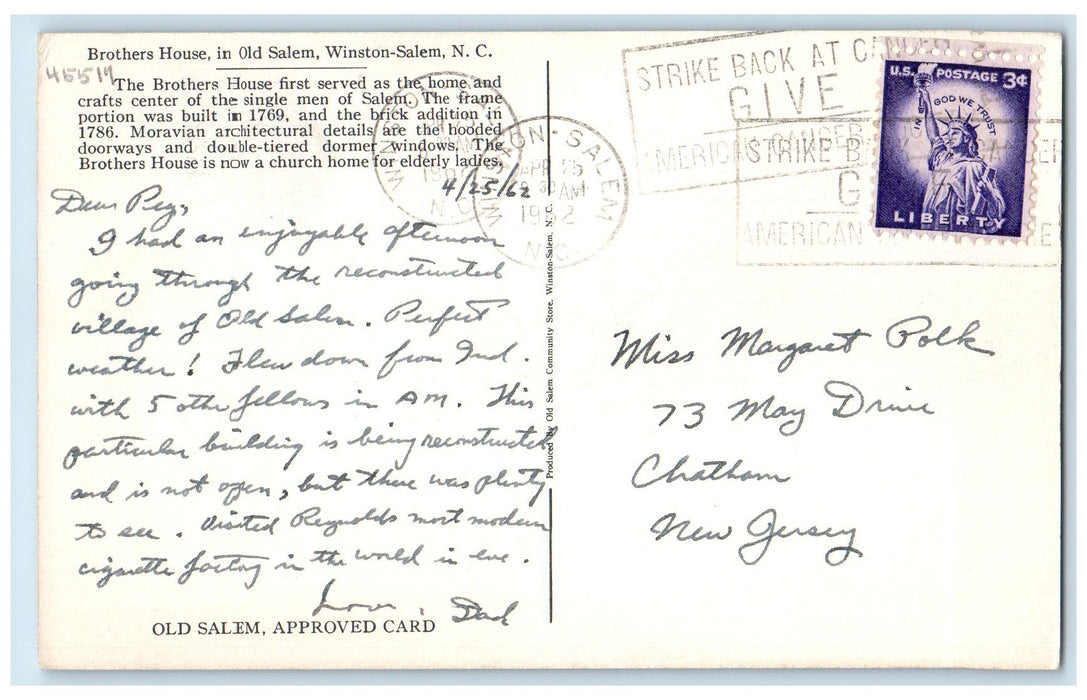 Brothers House, in Old Salem, Winston-Salem, N. C.
45517
The Brothers House first served as the home and
crafts center of the single men of Salem. The frame
portion was built in 1769, and the brick addition in
1786. Moravian architectural details are the hooded
doorways and double-tiered dormer windows. The
Brothers House is now a church home for elderly ladies.
4/25/62
Dear Peg,
I had an enjoyable afternoon
going through the reconstructed
village of Old Salem. Perfect
weather! Flew down from Ind.
with 5 other fellows in AM. This
particular building is being reconstructed
and is not open, but there was plenty
to see. Visited Reynolds most modern
cigarette factory in the world in eve.
Love, Dad
OLD SALEM, APPROVED CARD
Produced by Old Salem Community Store, Winston-Salem, N. C.
WINSTON-SALEM
APR 25
AM
1962
N.C.
STRIKE BACK AT CANCER
GIVE
AMERICAN CANCER
STRIKE B
G
AMERICAN
U.S. POSTAGE 3¢
IN GOD WE TRUST
LIBERTY
Miss Margaret Polk
73 May Drive
Chatham
New Jersey